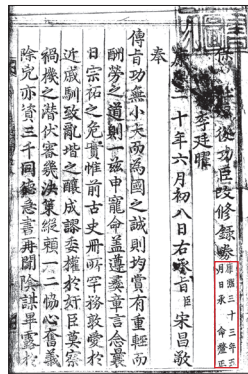 從功臣改修錄券
康熙三十三年五
月日承 命釐正
李廷
十年六月初八日右承旨臣宋昌敬
奉
傳旨功無小大而為國之誠則均賞有重輕而
酬勞之道則一兹申寵命盖遵彝章言念曩
日宗祏之危實惟前古史册所罕務敦愛於
近戚馴致亂階之釀成謬委權於奸臣莫察
禍機之潜伏審幾決策縱賴一二協心奮義
除兇亦資三千同德急書再聞陰謀畢露於